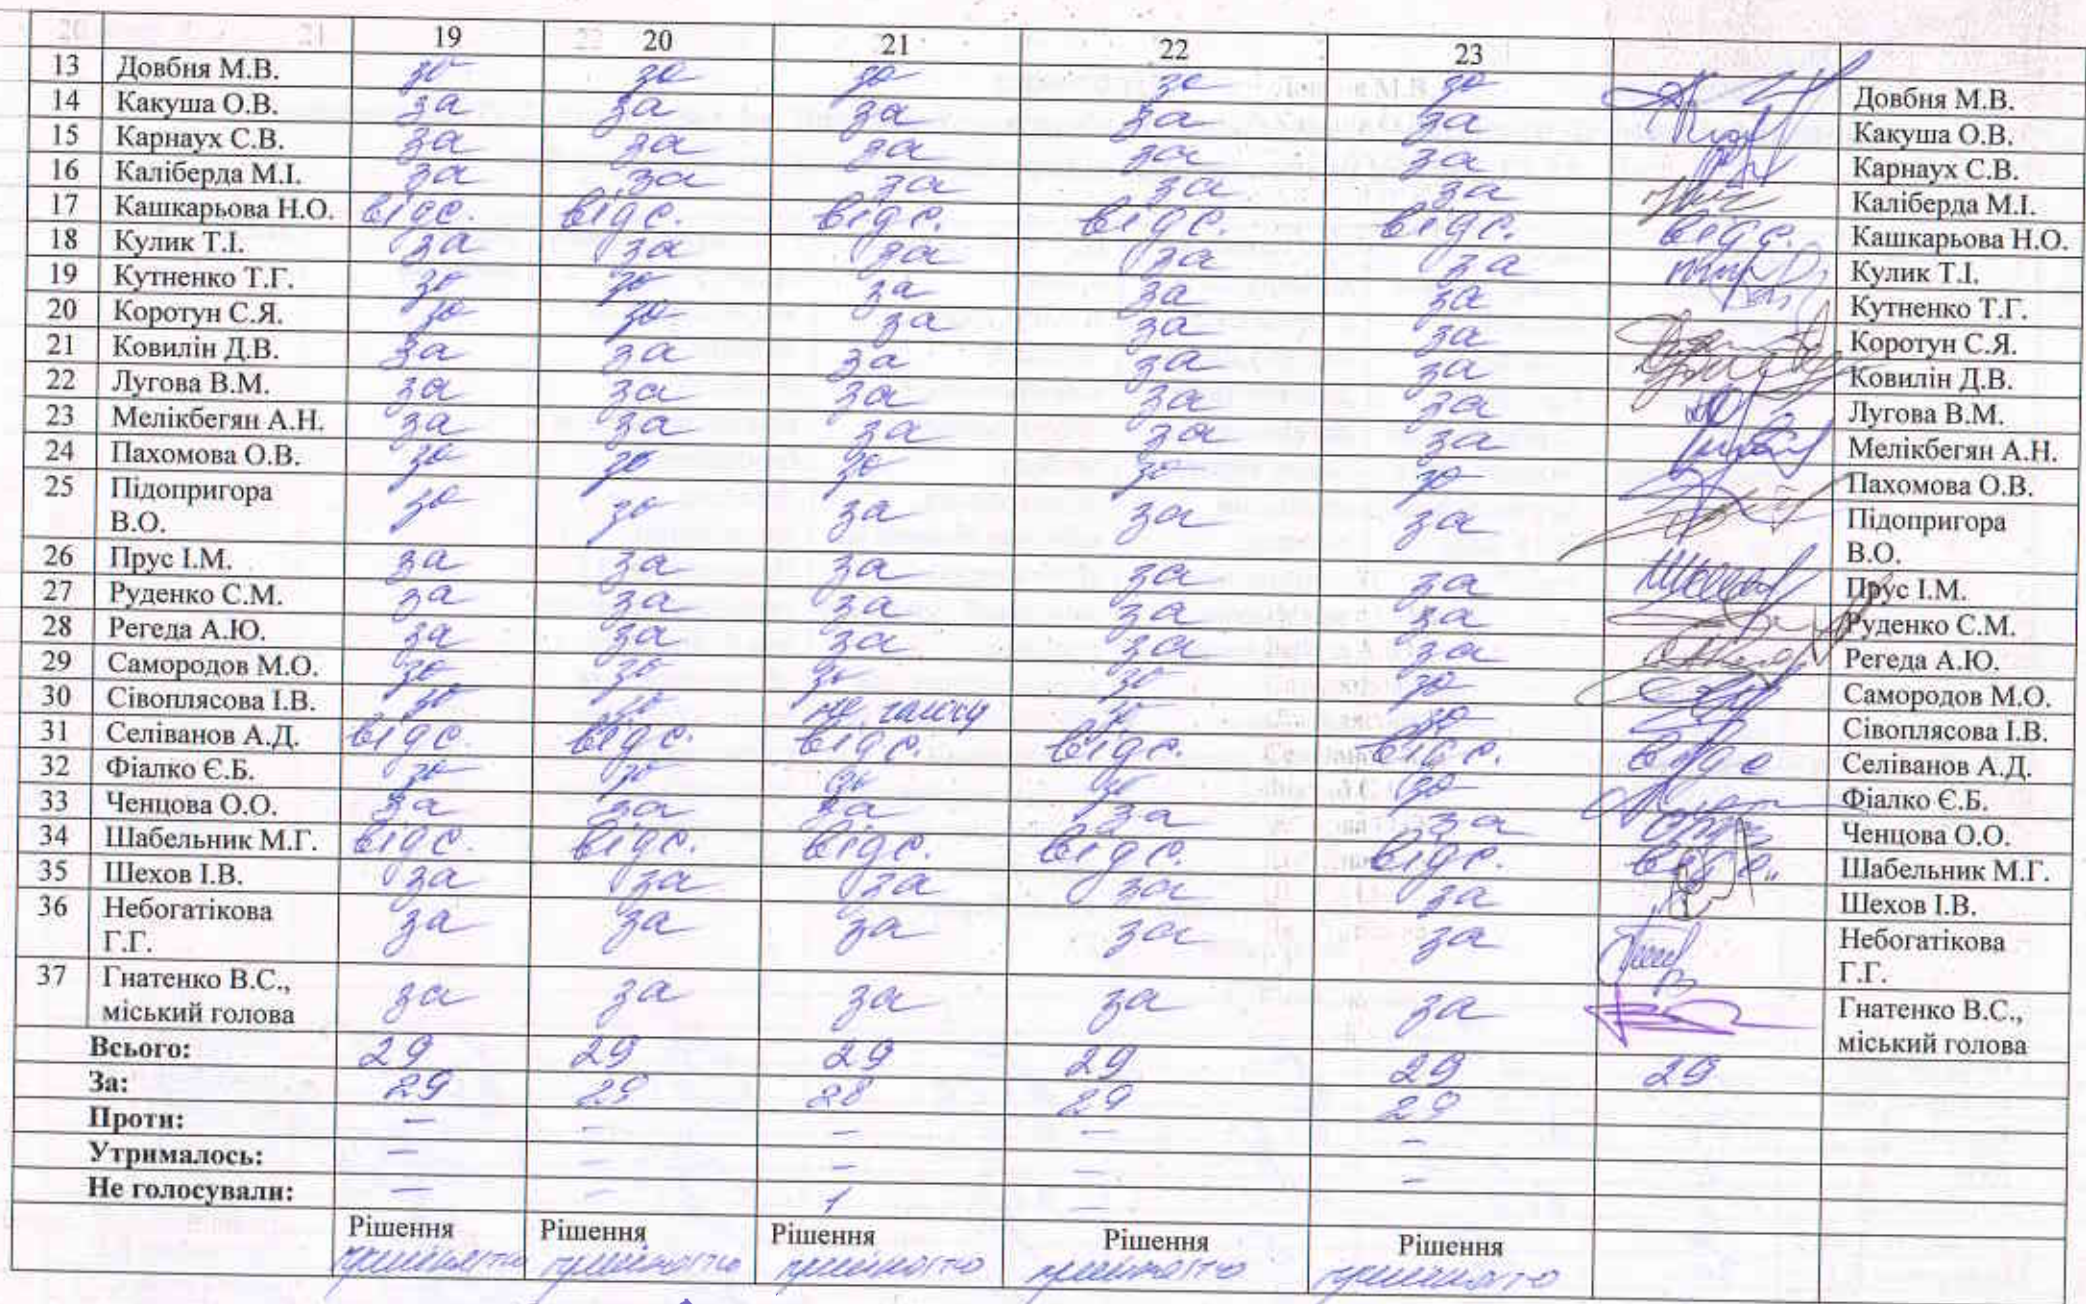 19 20 21 22 23
13 Довбня М.В. за за за за за Довбня М.В.
14 Какуша О.В. за за за за за Какуша О.В.
15 Карнаух С.В. за за за за за Карнаух С.В.
16 Каліберда М.І. за за за за за Каліберда М.І.
17 Кашкарьова Н.О. відс. відс. відс. відс. відс. відс. Кашкарьова Н.О.
18 Кулик Т.І. за за за за за Кулик Т.І.
19 Кутненко Т.Г. за за за за за Кутненко Т.Г.
20 Коротун С.Я. за за за за за Коротун С.Я.
21 Ковилін Д.В. за за за за за Ковилін Д.В.
22 Лугова В.М. за за за за за Лугова В.М.
23 Мелікбегян А.Н. за за за за за Мелікбегян А.Н.
24 Пахомова О.В. за за за за за Пахомова О.В.
25 Підопригора за за за за за Підопригора
В.О. В.О.
26 Прус І.М. за за за за за Прус І.М.
27 Руденко С.М. за за за за за Руденко С.М.
28 Регеда А.Ю. за за за за за Регеда А.Ю.
29 Самородов М.О. за за за за за Самородов М.О.
30 Сівоплясова І.В. за за не голосу за за Сівоплясова І.В.
31 Селіванов А.Д. відс. відс. відс. відс. відс. відс Селіванов А.Д.
32 Фіалко Є.Б. за за за за за Фіалко Є.Б.
33 Ченцова О.О. за за за за за Ченцова О.О.
34 Шабельник М.Г. відс. відс. відс. відс. відс. відс. Шабельник М.Г.
35 Шехов І.В. за за за за за Шехов І.В.
36 Небогатікова за за за за за Небогатікова
Г.Г. Г.Г.
37 Гнатенко В.С., за за за за за Гнатенко В.С.,
міський голова міський голова
Всього: 29 29 29 29 29 29
За: 29 29 28 29 29
Проти: - - - - -
Утрималось: - - - - -
Не голосували: - - 1 -
Рішення Рішення Рішення Рішення Рішення
прийнято прийнято прийнято прийнято прийнято